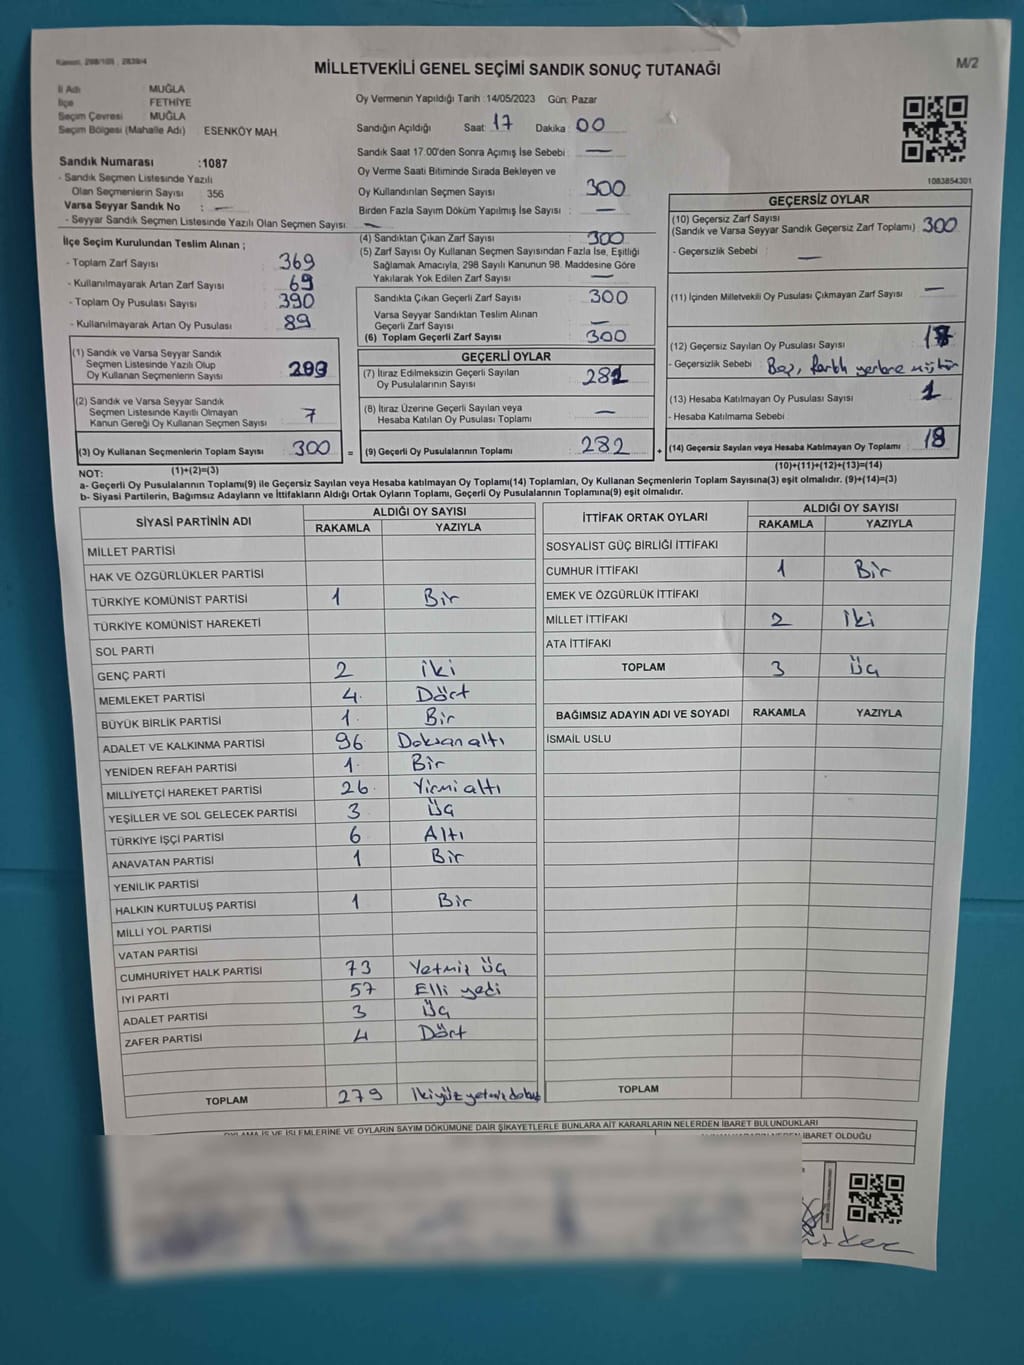 MİLLETVEKİLİ GENEL SEÇİMİ SANDIK SONUÇ TUTANAĞI
M/2
İl Adı : MUĞLA
İlçe : FETHİYE
Seçim Çevresi : MUĞLA
Seçim Bölgesi (Mahalle Adı) : ESENKÖY MAH
Sandık Numarası :1087
- Sandık Seçmen Listesinde Yazılı
Olan Seçmenlerin Sayısı : 356
Varsa Seyyar Sandık No : —
- Seyyar Sandık Seçmen Listesinde Yazılı Olan Seçmen Sayısı: —
Oy Vermenin Yapıldığı Tarih :14/05/2023 Gün: Pazar
Sandığın Açıldığı Saat: 17 Dakika : 00
Sandık Saat 17.00'den Sonra Açımış İse Sebebi : —
Oy Verme Saati Bitiminde Sırada Bekleyen ve
Oy Kullandırılan Seçmen Sayısı : 300
Birden Fazla Sayım Döküm Yapılmış İse Sayısı : —
1083854301
İlçe Seçim Kurulundan Teslim Alınan ;
- Toplam Zarf Sayısı : 369
- Kullanılmayarak Artan Zarf Sayısı : 69
- Toplam Oy Pusulası Sayısı : 390
- Kullanılmayarak Artan Oy Pusulası : 89
(1) Sandık ve Varsa Seyyar Sandık
Seçmen Listesinde Yazılı Olup
Oy Kullanan Seçmenlerin Sayısı
(2) Sandık ve Varsa Seyyar Sandık
Seçmen Listesinde Kayıtlı Olmayan
Kanun Gereği Oy Kullanan Seçmen Sayısı : 7
(3) Oy Kullanan Seçmenlerin Toplam Sayısı : 300
(4) Sandıktan Çıkan Zarf Sayısı : 300
(5) Zarf Sayısı Oy Kullanan Seçmen Sayısından Fazla İse, Eşitliği
Sağlamak Amacıyla, 298 Sayılı Kanunun 98. Maddesine Göre
Yakılarak Yok Edilen Zarf Sayısı : —
Sandıkta Çıkan Geçerli Zarf Sayısı : 300
Varsa Seyyar Sandıktan Teslim Alınan
Geçerli Zarf Sayısı : —
(6) Toplam Geçerli Zarf Sayısı : 300
GEÇERLİ OYLAR
(7) İtiraz Edilmeksizin Geçerli Sayılan
Oy Pusulalarının Sayısı : 282
(8) İtiraz Üzerine Geçerli Sayılan veya
Hesaba Katılan Oy Pusulası Toplamı : —
= (9) Geçerli Oy Pusulalarının Toplamı : 282 +
GEÇERSİZ OYLAR
(10) Geçersiz Zarf Sayısı
(Sandık ve Varsa Seyyar Sandık Geçersiz Zarf Toplamı) : 300
- Geçersizlik Sebebi : —
(11) İçinden Milletvekili Oy Pusulası Çıkmayan Zarf Sayısı : —
(12) Geçersiz Sayılan Oy Pusulası Sayısı :
- Geçersizlik Sebebi : Boş, farklı yerlere mühür
(13) Hesaba Katılmayan Oy Pusulası Sayısı : 1
- Hesaba Katılmama Sebebi :
(14) Geçersiz Sayılan veya Hesaba Katılmayan Oy Toplamı : 18
NOT: (1)+(2)=(3)
(10)+(11)+(12)+(13)=(14)
a- Geçerli Oy Pusulaları Toplamı(9) ile Geçersiz Sayılan veya Hesaba katılmayan Oy Toplamı(14) Toplamları, Oy Kullanan Seçmenlerin Toplam Sayısına(3) eşit olmalıdır. (9)+(14)=(3)
b- Siyasi Partilerin, Bağımsız Adayların ve İttifakların Aldığı Ortak Oyların Toplamı, Geçerli Oy Pusulalarının Toplamına(9) eşit olmalıdır.
SİYASİ PARTİNİN ADI ALDIĞI OY SAYISI
RAKAMLA YAZIYLA
MİLLET PARTİSİ
HAK VE ÖZGÜRLÜKLER PARTİSİ
TÜRKİYE KOMÜNİST PARTİSİ 1 Bir
TÜRKİYE KOMÜNİST HAREKETİ
SOL PARTİ
GENÇ PARTİ 2 iki
MEMLEKET PARTİSİ 4 Dört
BÜYÜK BİRLİK PARTİSİ 1 Bir
ADALET VE KALKINMA PARTİSİ 96 Doksan altı
YENİDEN REFAH PARTİSİ 1 Bir
MİLLİYETÇİ HAREKET PARTİSİ 26 Yirmi altı
YEŞİLLER VE SOL GELECEK PARTİSİ 3 Üç
TÜRKİYE İŞÇİ PARTİSİ 6 Altı
ANAVATAN PARTİSİ 1 Bir
YENİLİK PARTİSİ
HALKIN KURTULUŞ PARTİSİ 1 Bir
MİLLİ YOL PARTİSİ
VATAN PARTİSİ
CUMHURİYET HALK PARTİSİ 73 Yetmiş üç
İYİ PARTİ 57 Elli yedi
ADALET PARTİSİ 3 Üç
ZAFER PARTİSİ 4 Dört
TOPLAM 279 İkiyüz yetmiş dokuz
İTTİFAK ORTAK OYLARI ALDIĞI OY SAYISI
RAKAMLA YAZIYLA
SOSYALİST GÜÇ BİRLİĞİ İTTİFAKI
CUMHUR İTTİFAKI 1 Bir
EMEK VE ÖZGÜRLÜK İTTİFAKI
MİLLET İTTİFAKI 2 İki
ATA İTTİFAKI
TOPLAM 3 Üç
BAĞIMSIZ ADAYIN ADI VE SOYADI RAKAMLA YAZIYLA
İSMAİL USLU
TOPLAM
OYLAMA İŞ VE İŞLEMLERİNE VE OYLARIN SAYIM DÖKÜMÜNE DAİR ŞİKAYETLERLE BUNLARA AİT KARARLARIN NELERDEN İBARET BULUNDUKLARI
İBARET OLDUĞU